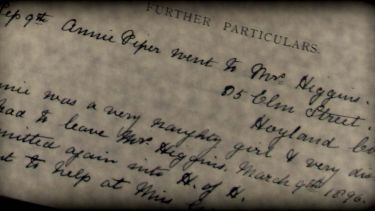 FURTHER PARTICULARS.
Sep 9th Annie Piper went to Mrs Higgins.
85 Elm Street.
Hoyland
was a very naughty girl & very
had to leave Mrs Higgins, March 9th 1896.
again into H. of H.
to help at Miss